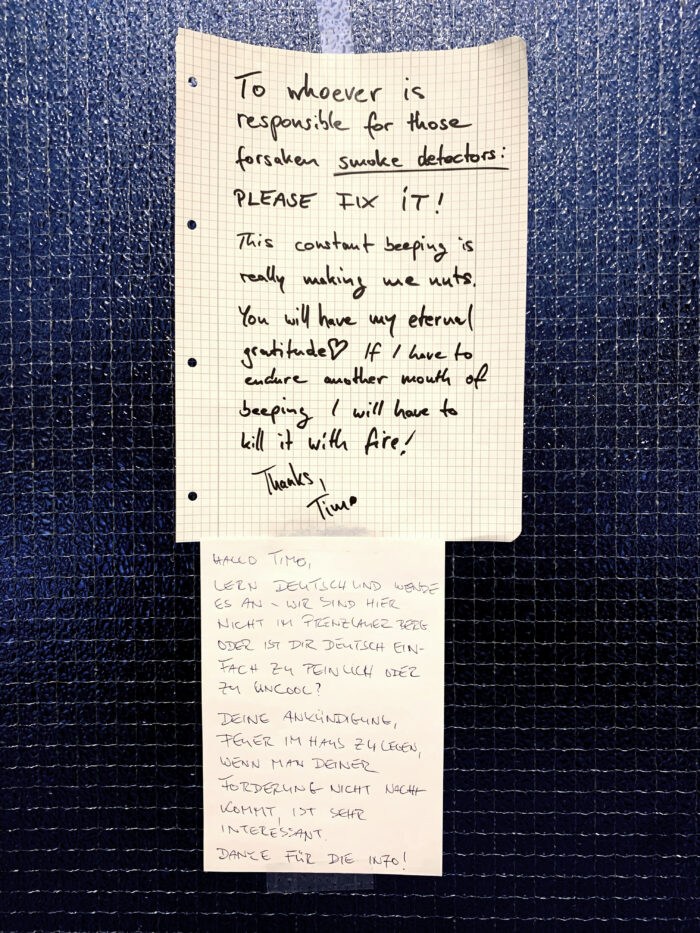 To whoever is
responsible for those
forsaken smoke detectors:
PLEASE FIX IT!
This constant beeping is
really making me nuts.
You will have my eternal
gratitude♡ If I have to
endure another month of
beeping I will have to
kill it with fire!
Thanks,
Timo
HALLO TIMO,
LERN DEUTSCH UND WENDE
ES AN - WIR SIND HIER
NICHT IM PRENZLAUER BERG
ODER IST DIR DEUTSCH EIN-
FACH ZU PEINLICH ODER
ZU UNCOOL?
DEINE ANKÜNDIGUNG,
FEUER IM HAUS ZU LEGEN,
WENN MAN DEINER
FORDERUNG NICHT NACH-
KOMMT, IST SEHR
INTERESSANT.
DANKE FÜR DIE INFO!